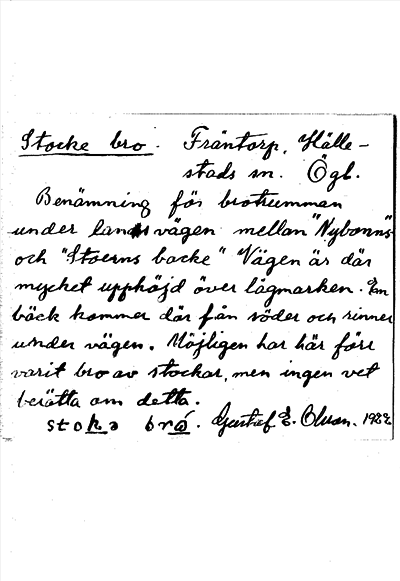 Stocke bro. Fräntorp, Hälle-
stads sn. Ögl.
Benämning för brotrumman
under landsvägen mellan "Nybonns"
och "Stoerns backe" Vägen är där
mycket upphöjd över lågmarken. En
bäck kommer där från söder och rinner
under vägen. Möjligen har här förr
varit bro av stockar, men ingen vet
berätta om detta.
stokə bró. Gustaf E. Olsson. 1922